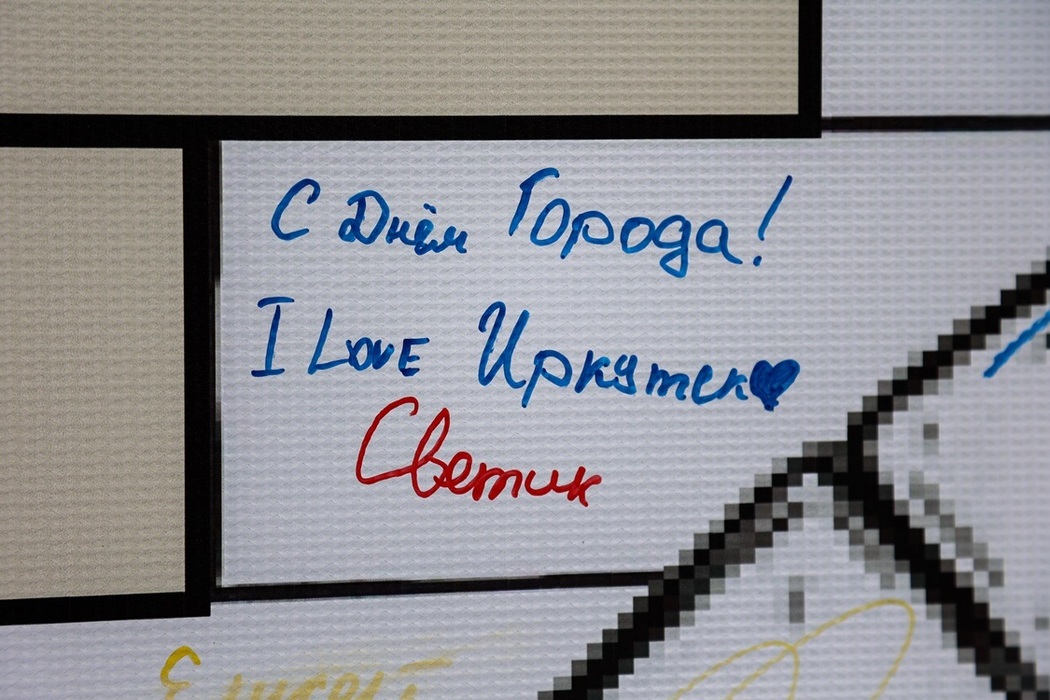 С Днём Города!
I LOVE Иркутск
Светик